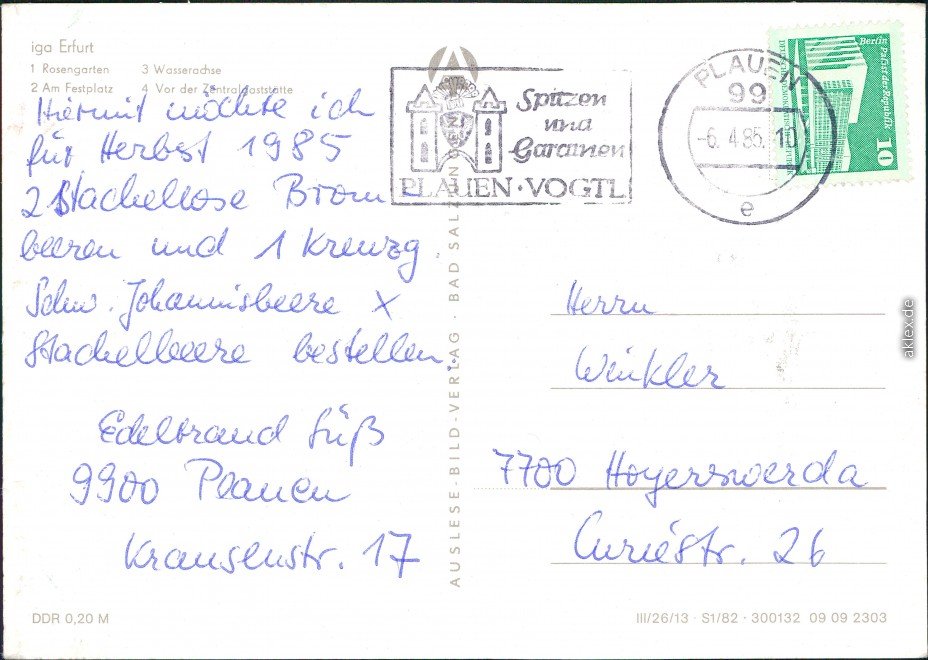 iga Erfurt
1 Rosengarten 3 Wasserachse
2 Am Festplatz 4 Vor der Zentralgaststätte
Hiermit möchte ich
für Herbst 1985
2 Stachellose Brom
beeren und 1 Kreuzg
Schw. Johannisbeere X
Stachelbeere bestellen.
Edeltraud Süß
9900 Plauen
Krausenstr. 17
DDR 0,20 M
AUSLESE-BILD-VERLAG · BAD SALZUNGEN
Spitzen
und
Gardinen
PLAUEN · VOGTL
PLAUEN
99
-6. 4.85. 10
e
Berlin Palast der Republik
10
Herrn
Winkler
7700 Hoyerswerda
Curiestr. 26
III/26/13 · S1/82 · 300132 09 09 2303
aklex.de